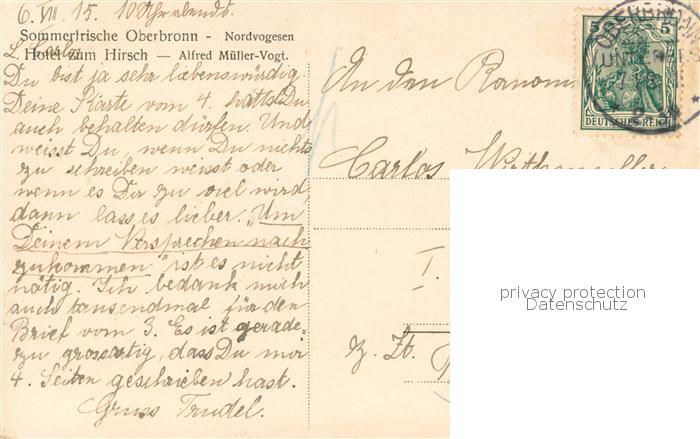 6. VIII 15. 10 Uhr abends.
Sommerfrische Oberbronn - Nordvogesen
Hotel zum Hirsch — Alfred Müller-Vogt.
L. Carlos
Du bist ja sehr liebenswürdig.
Deine Karte vom 4. hättst Du
auch behalten dürfen. Und
weisst Du, wenn Du nichts
zu schreiben weisst oder
wenn es Dir zu viel wird,
dann lass es lieber. "Um
Deinem Versprechen nach
zukommen" ist es nicht
nötig. Ich bedank mich
auch tausendmal für den
Brief vom 3. Es ist gerade-
zu grossartig, dass Du mir
4. Seiten geschrieben hast.
Gruss Trudel.
An den Kanonier
Carlos
I.
z. Zt.
5 5
DEUTSCHES REICH
privacy protection
Datenschutz